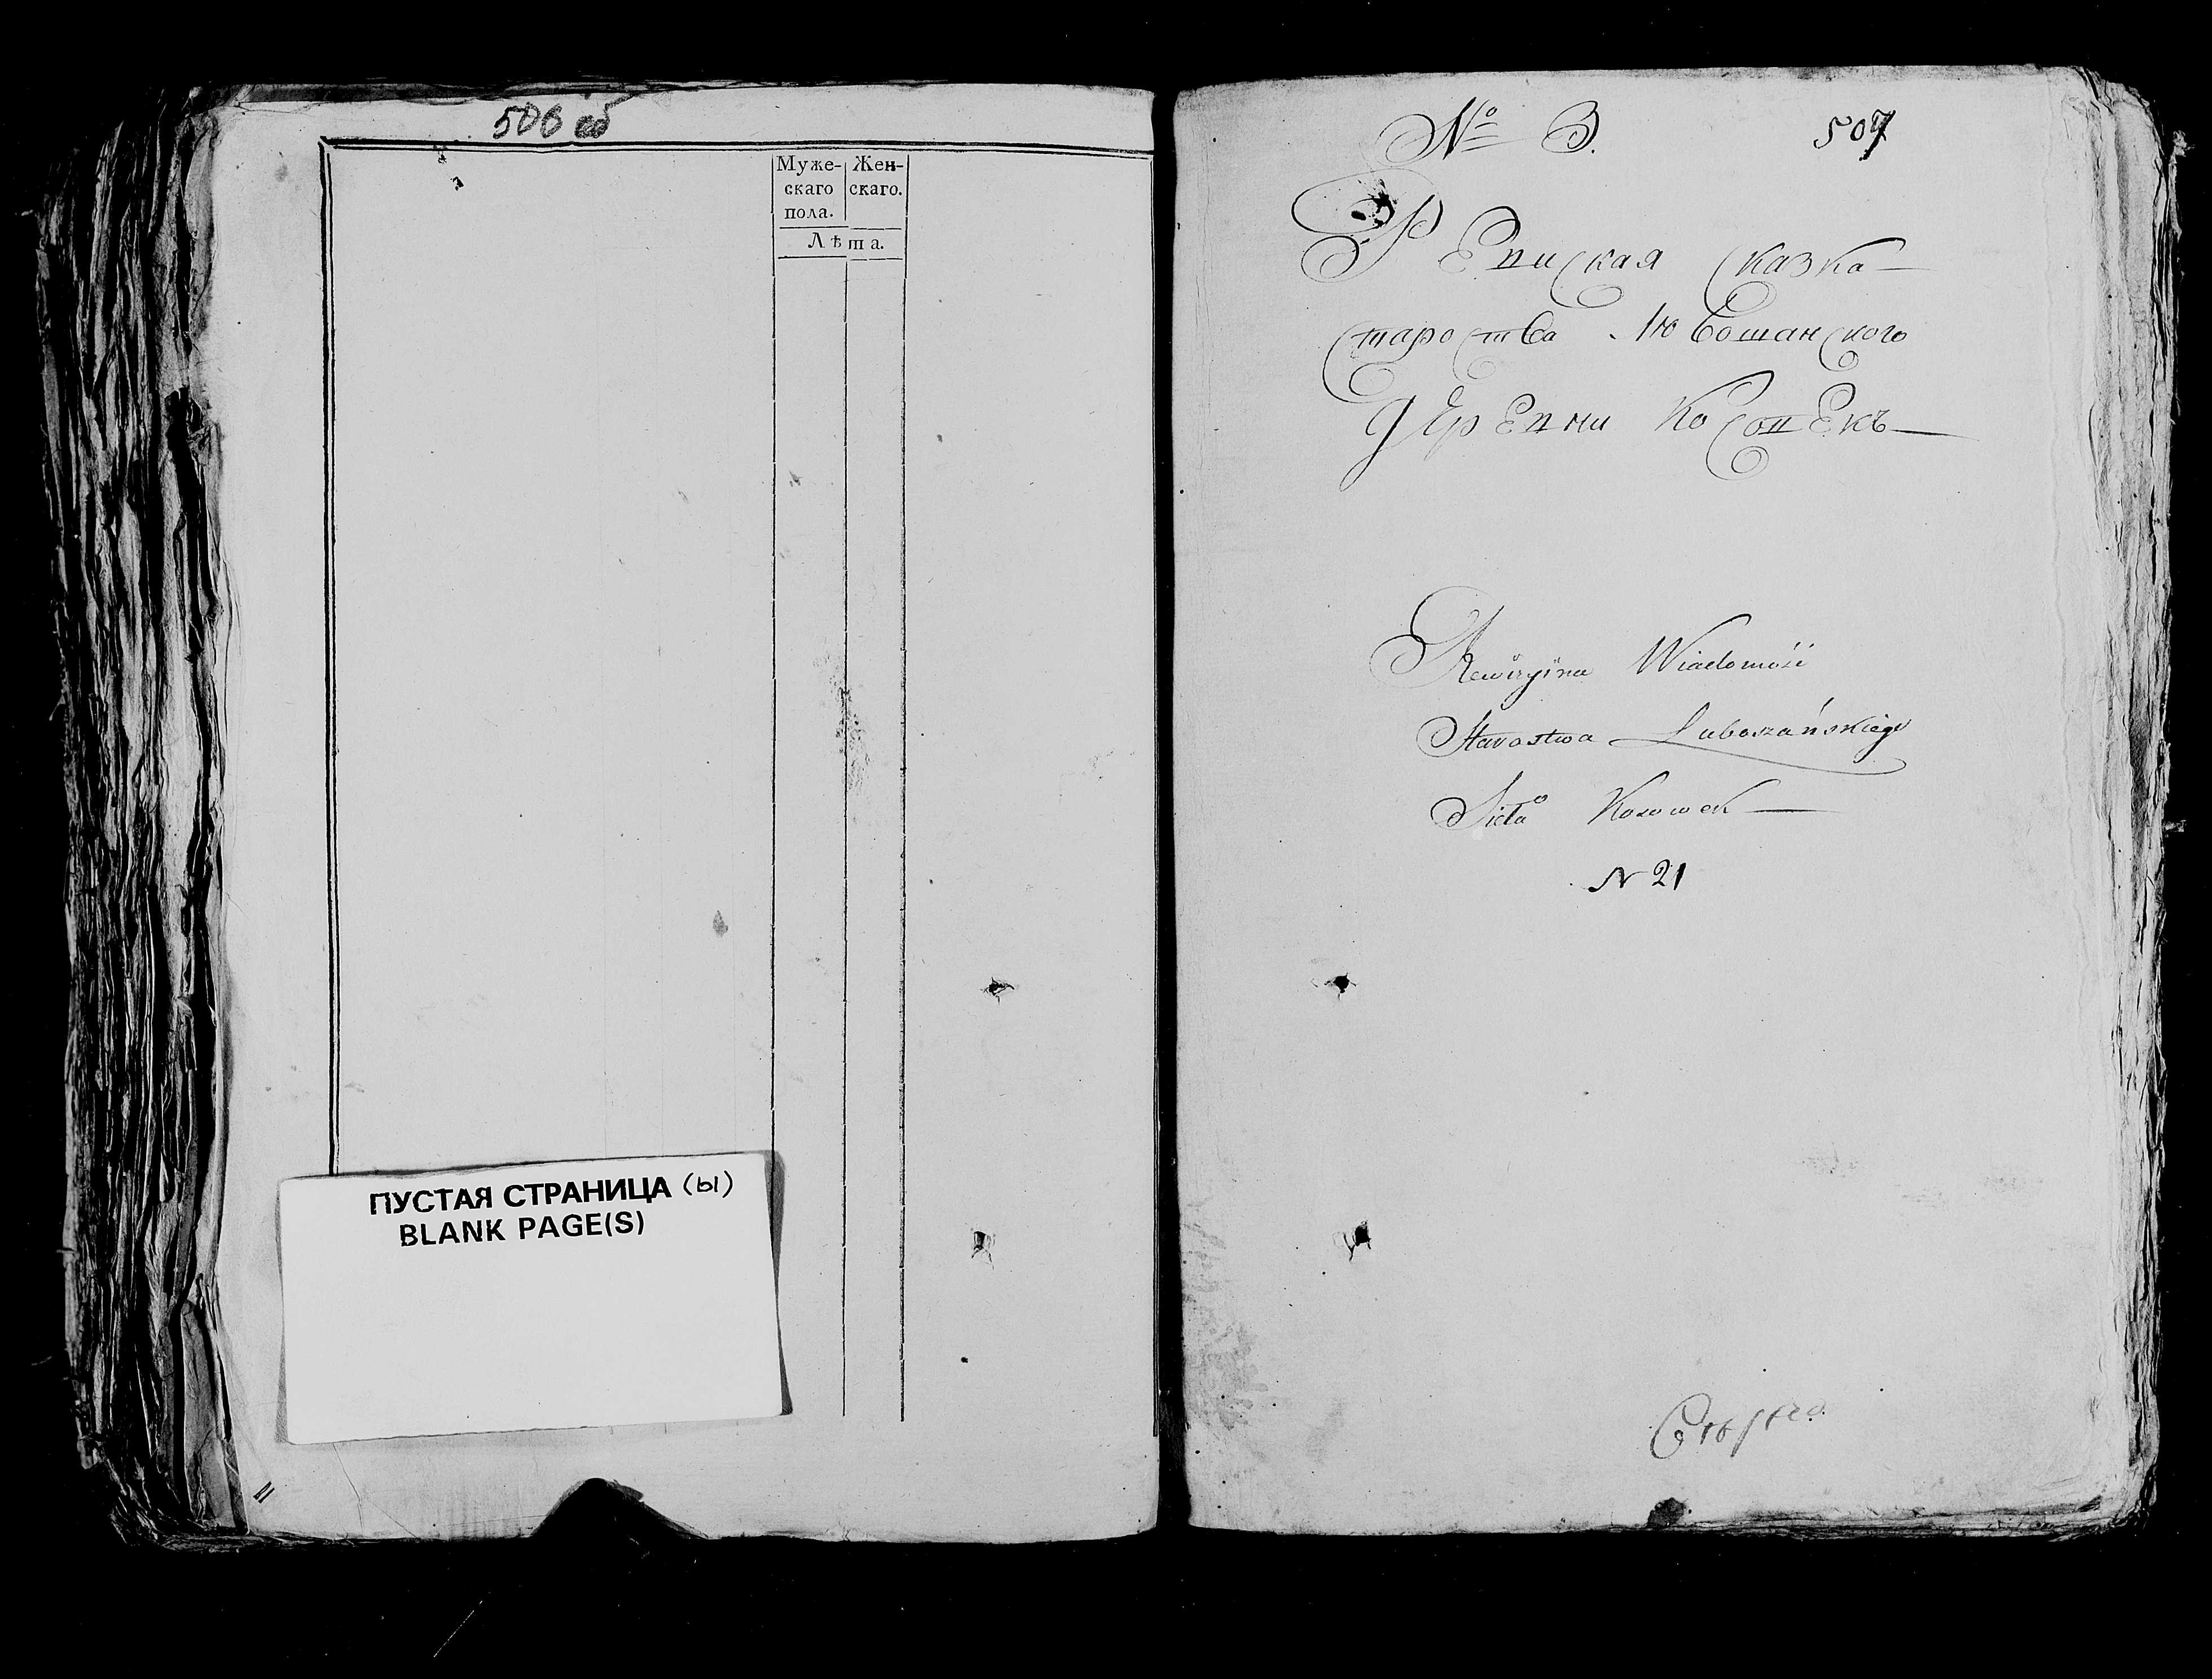 506 об
Муже- Жен-
скаго скаго.
пола.
Лѣта.
ПУСТАЯ СТРАНИЦА (ы)
BLANK PAGE(S)
№ 3. 507
Ревиская Сказка
Староства Любошанского
деревни Косовекъ
Rewizyina Wiadomość
Starostwa Luboszańskiego
Sioła Kosowek
N 21